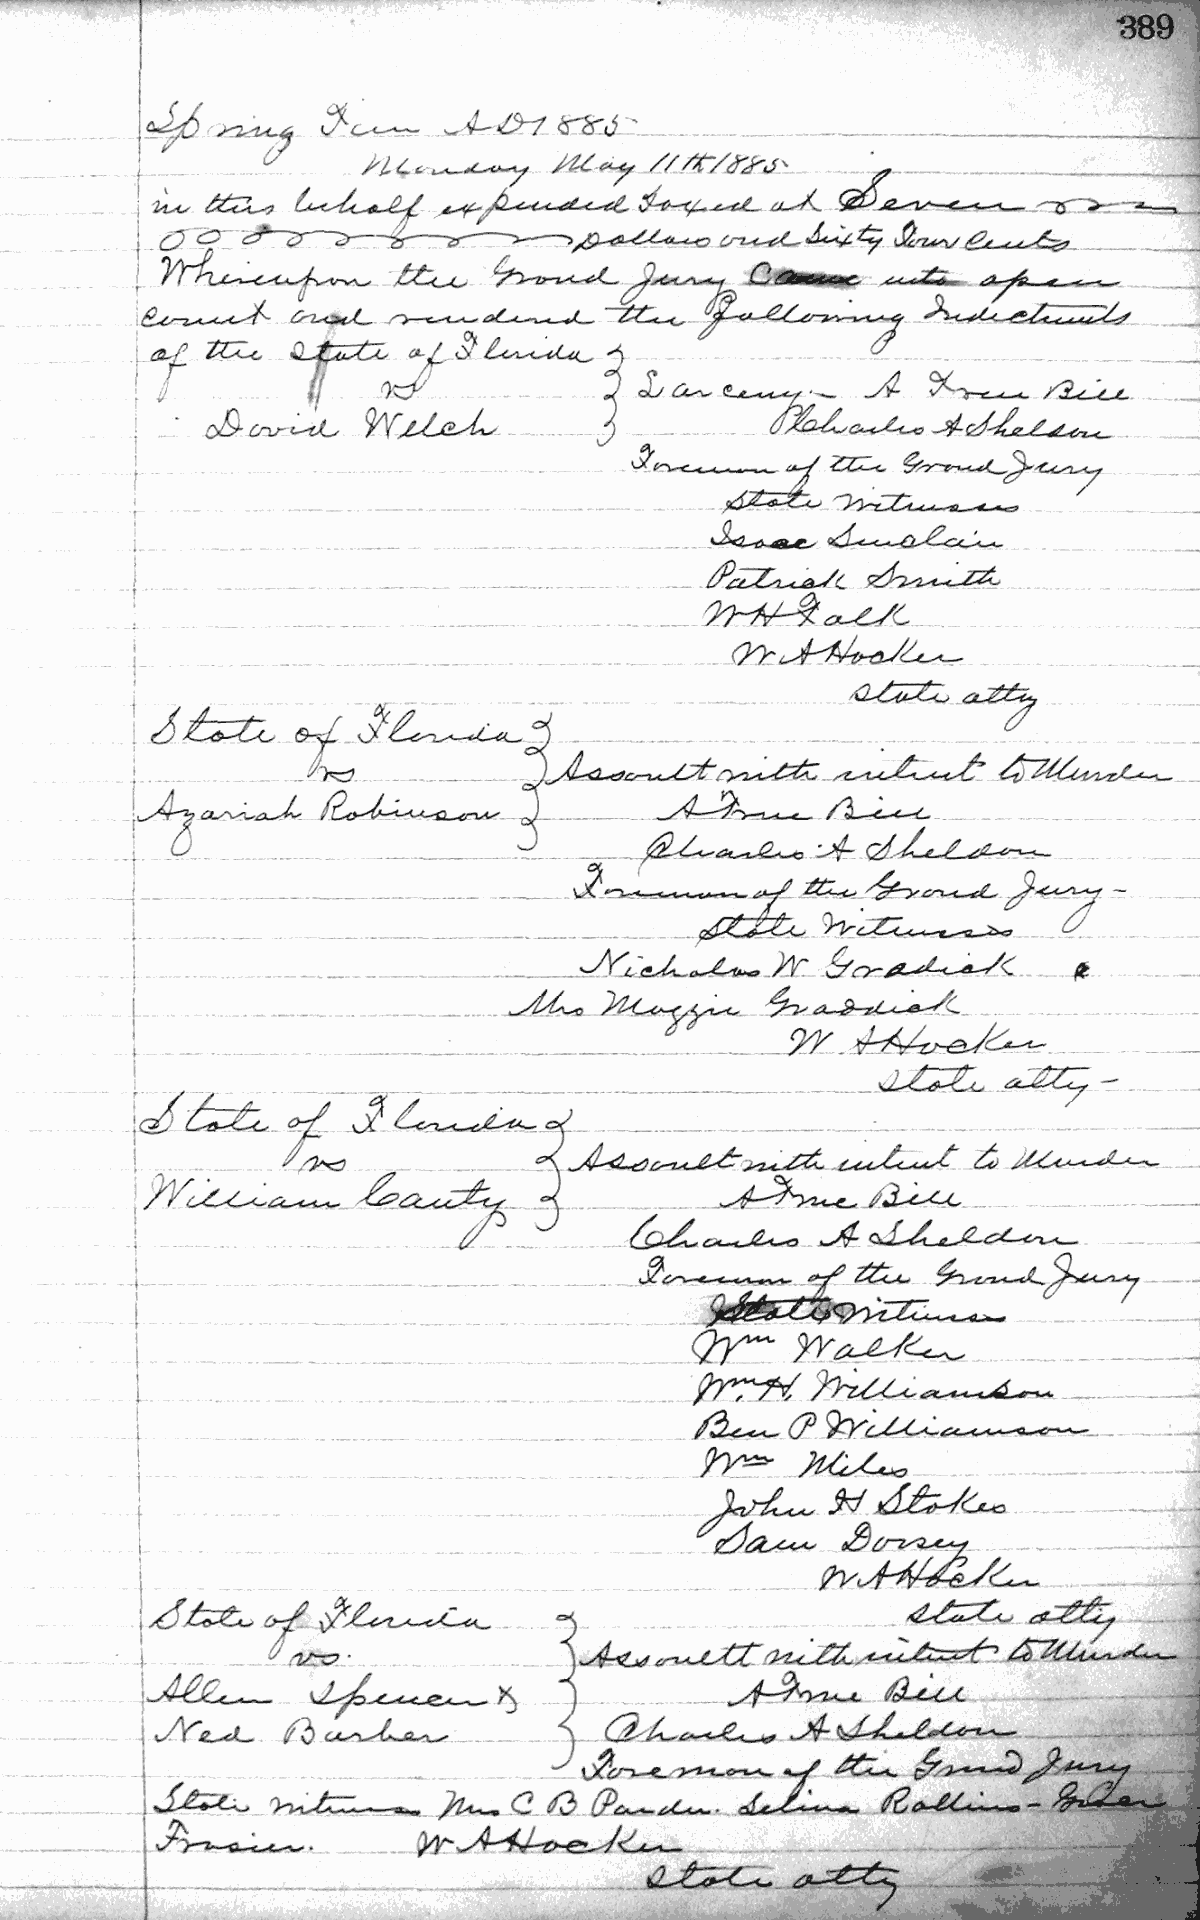 389
Spring Term A D 1885
Monday May 11th 1885
in this behalf expended Taxed at Seven
Dollars and Sixty Four Cents
Whereupon the Grand Jury Came into open
court and rendered the following Indictments
of the State of Florida
vs
Larceny - A True Bill
David Welch
Charles A Sheldon
Foreman of the Grand Jury
State Witnesses
Isaac Sinclair
Patrick Smith
W H Falk
W A Hocker
State atty
State of Florida
vs
Assault with intent to Murder
Azariah Robinson
A True Bill
Charles A Sheldon
Foreman of the Grand Jury -
State Witnesses
Nicholas W Gradick
Mrs Maggie Graddick
W A Hocker
State atty -
State of Florida
vs
Assault with intent to Murder
William Canty
A True Bill
Charles A Sheldon
Foreman of the Grand Jury
State Witnesses
Wm Walker
Wm. H. Williamson
Ben P Williamson
Wm Miles
John H Stokes
Sam Dorsey
W A Hocker
State atty
State of Florida
vs.
Assault with intent to Murder
Allen Spencer &
A True Bill
Ned Barber
Charles A Sheldon
Foreman of the Grand Jury
State witness Mrs C B Ponder. Selina Rollins -
Frasier. W A Hocker
State atty